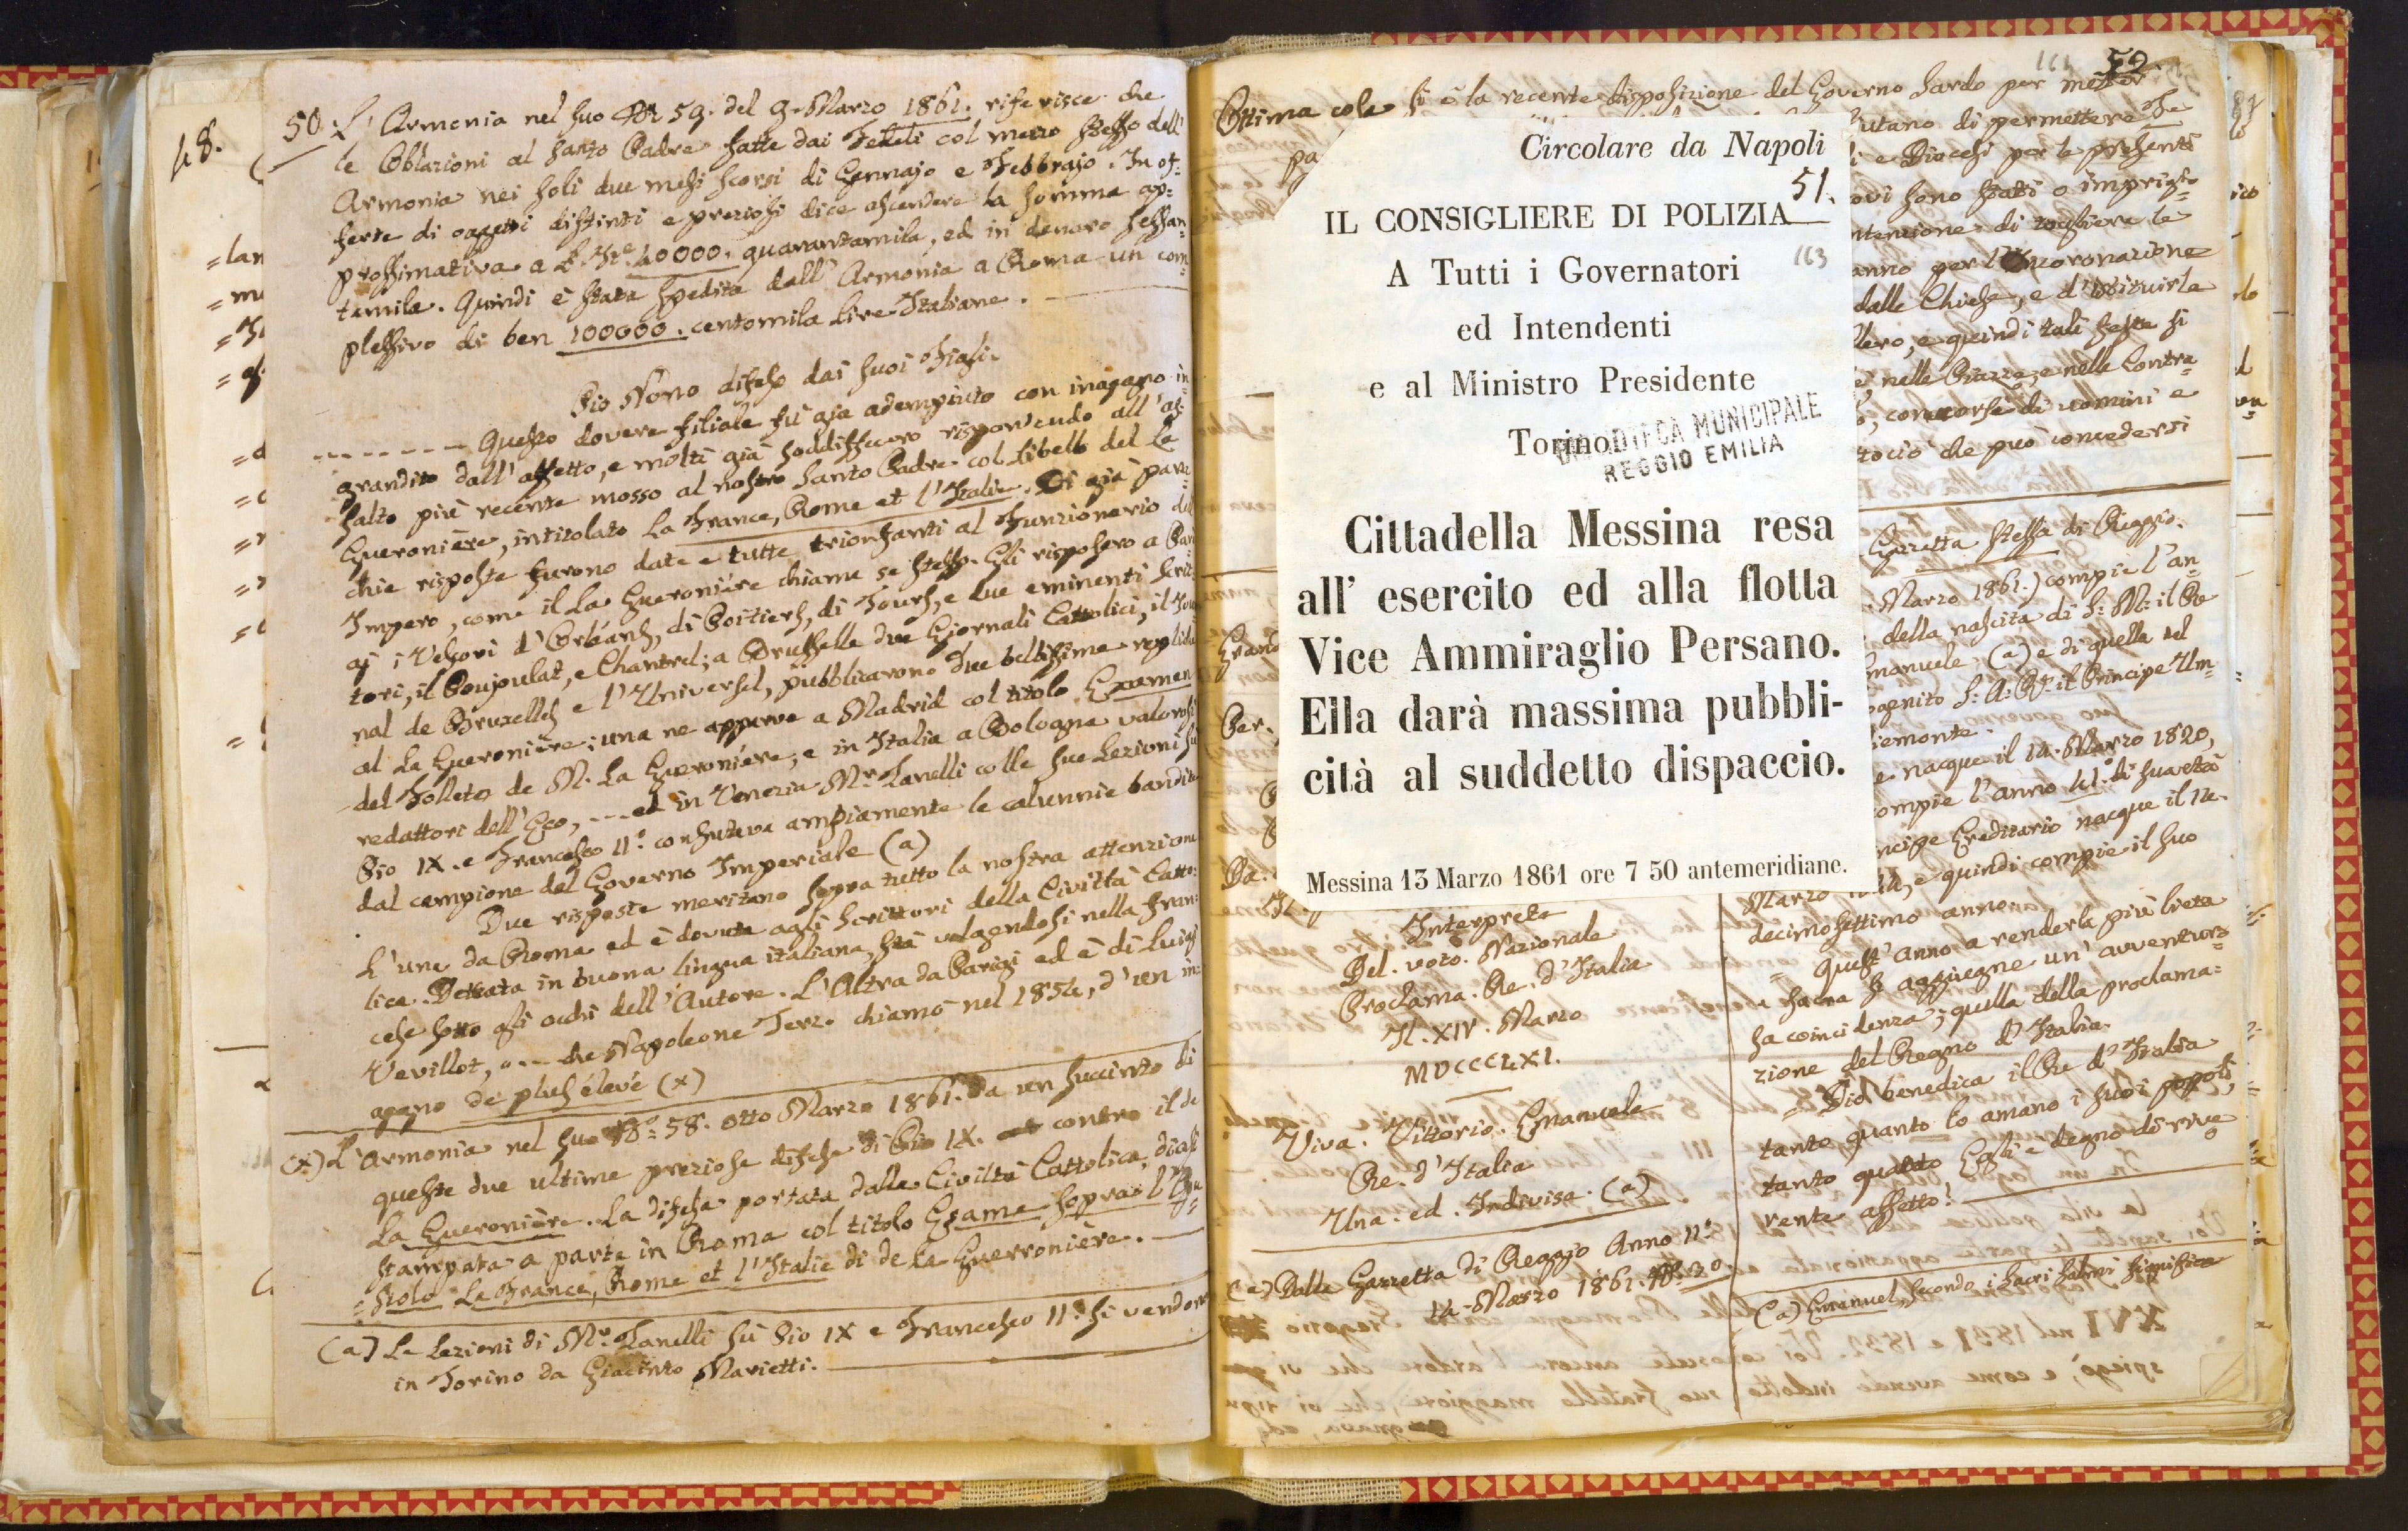 48.
50. L'Armonia nel suo No. 59. del 9. Marzo 1861. riferisce che
le Oblazioni al Santo Padre fatte dai Fedeli col mezzo stesso dell'
Armonia nei soli due mesi scorsi di Gennajo e Febbrajo. In of=
ferte di oggetti distinti e preziosi dice ascendere la somma ap=
prossimativa a L. It.e 40000. quarantamila, ed in denaro sessan=
tamila. Quindi è stata spedita dall'Armonia a Roma un com=
plessivo di ben 100000. centomila Lire Italiane.
Pio Nono difeso dai suoi Figli.
Questo dovere filiale fù già adempiuto con inagano in
grandito dall'affetto, e molti già soddisfecero rispondendo all'as=
salto più recente mosso al nostro Santo Padre col libello del La
Gueronière, intitolato La France, Rome et l'Italie. Di già parec=
chie risposte furono date e tutte trionfanti al Funzionario del
Impero, come il La Gueronière chiama se stesso. Gli risposero a Pari
gi i Vescovi d'Orleans, di Poitiers, di Tours, e due eminenti scrit=
tori, il Poujoulat, e Chantrel; a Brusselle due Giornali Cattolici, il Jour
nal de Bruxelles e l'Universel, pubblicarono due bellissime repliche
al La Gueronière; una ne apparve a Madrid col titolo Examen
del Folleto de M. La Gueronière, e in Italia a Bologna valorosi
redattori dell'Eco, --- ed in Venezia Mr. Zanelli colle sue Lezioni su
Pio IX. e Francesco II.° confutava ampiamente le calunnie bandite
dal campione del Governo Imperiale (a)
Due risposte meritano sopra tutto la nostra attenzione
L'una da Roma ed è dovuta agli scrittori della Civiltà Catto=
lica. Dettata in buona lingua italiana, stà volgendosi nella fran=
cese sotto gli occhi dell'Autore. L'Altra da Parigi ed è di Luigi
Vevillot, --- che Napoleone Terzo chiamò nel 1854, d'un in=
gegno de plus élevé (x)
(x) L'Armonia nel suo No. 58. otto Marzo 1861. da un succinto di
queste due ultime preziose difese di Pio IX. contro il de
La Gueronière. La difesa portata dalla Civiltà Cattolica,
stampata a parte in Roma col titolo Esame sopra l'Opu
=scolo La France, Rome et l'Italie di de La Guerronière.
(a) Le Lezioni di Mr. Zanelli sù Pio IX e Francesco II.° si vendono
in Torino da Giacinto Marietti.
161 52
Ottima cosa si è la recente disposizione del Governo Sardo per metter
Circolare da Napoli
51.
IL CONSIGLIERE DI POLIZIA
163
A Tutti i Governatori
ed Intendenti
e al Ministro Presidente
Torino
MUNICIPALE
REGGIO EMILIA
Cittadella Messina resa
all' esercito ed alla flotta
Vice Ammiraglio Persano.
Ella darà massima pubbli-
cità al suddetto dispaccio.
Messina 13 Marzo 1861 ore 7 50 antemeridiane.
utano di permettere
i e Diocesi per le presenti
ovi sono stati o
ntenzione di togliere le
anno per l'Incoronazione
dalle Chiese, e d'istituirle
lero, e quindi tali feste si
nelle Piazze, e nelle Contra
concorse di uomini e
tociò che può concedersi
Interprete
Del. voto. Nazionale
Proclama. Re. d'Italia
Il. XIV. Marzo
MDCCCLXI.
Viva. Vittorio. Emanuele
Re. d'Italia
Una. ed. Indivisa. (a)
(a) Dalla Gazzetta di Reggio Anno II.°
14. Marzo 1861. No. 30
Gazzetta stessa di Reggio.
Marzo 1861.) compie l'an=
della nascita di S. M. il Re
Emanuele (a) e di quella del
S. A. R. il Principe Um=
iemonte.
e nacque il 14. Marzo 1820,
compie l'anno 41.° di sua età
ncipe Ereditario nacque il 14.
Marzo 1844, e quindi compie il suo
decimosettimo anno.
= Quest'anno a renderla più lieta
e sacra si aggiugne un'avventuro=
sa coincidenza; quella della proclama=
zione del Regno d'Italia.
= Dio benedica il Re d'Italia
tanto quanto lo amano i suoi popoli,
tanto quanto Egli è degno di rive=
rente affetto!
(a) Emanuel, secondo i Sacri Salmi significa